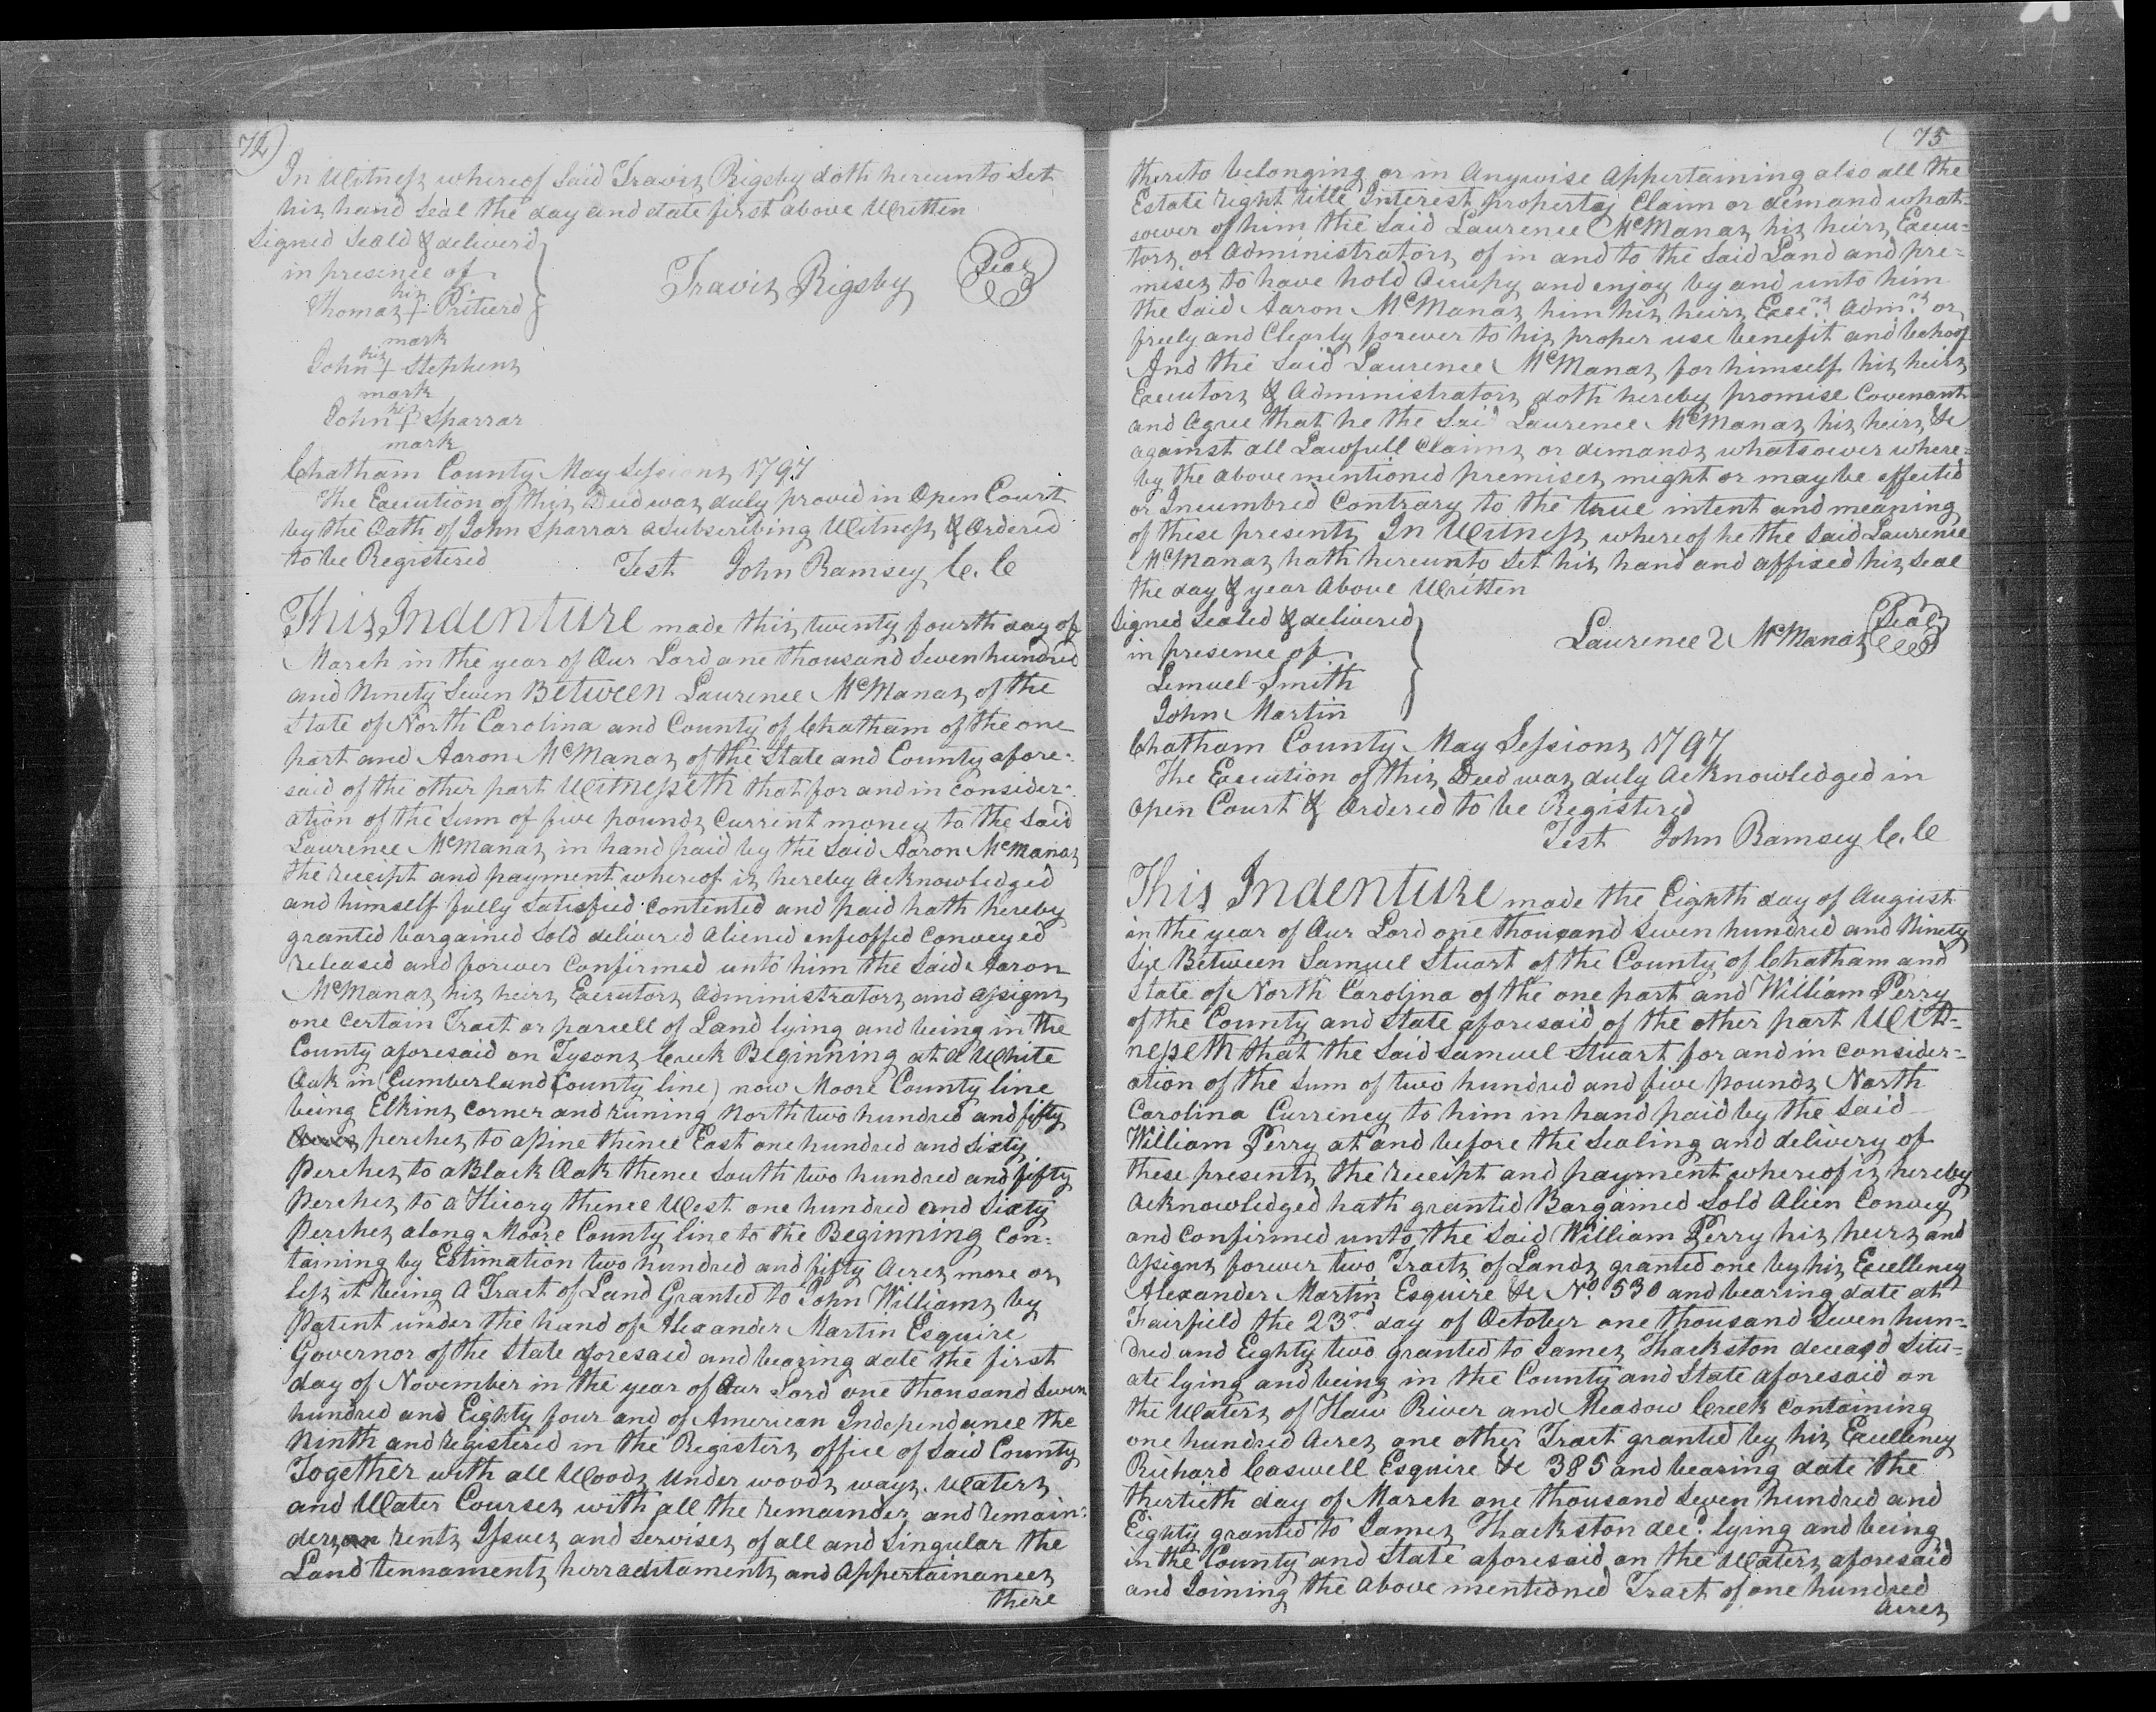 74)
In Witness whereof Said Travis Rigsby doth hereunto Set
his hand Seal the day and date first above Written
Signed Seald & deliverd
in presence of
Travis Rigsby Seal
his
Thomas +
mark
his
John + Stephens
mark
his
John + Sparrar
mark
Chatham County May Sessions 1797
The Execution of this Deed was duly proved in Open Court
by the Oath of John Sparrar a Subscribing Witness & Ordered
to be Registered Test John Ramsey C.C
This Indenture made this twenty fourth day of
March in the year of Our Lord one thousand Seven hundred
and Ninety Seven Between Laurence McManas of the
State of North Carolina and County of Chatham of the one
part and Aaron McManas of the State and County afore-
said of the other part Witnesseth that for and in consider-
ation of the Sum of five pounds Current money to the Said
Laurence McManas in hand paid by the Said Aaron McManas
the receipt and payment whereof is hereby Acknowledged
and himself fully Satisfied Contented and paid hath hereby
granted bargained Sold delivered Aliened enfeoffed Conveyed
released and forever Confirmed unto him the Said Aaron
McManas his heirs Executors Administrators and Assigns
one certain Tract or parcell of Land lying and being in the
County aforesaid on Tysons Creek Beginning at a White
Oak in (Cumberland County line) now Moore County line
being Elkins Corner and runing North two hundred and fifty
Acres perches to a pine thence East one hundred and Sixty
Perches to a Black Oak thence South two hundred and fifty
Perches to a Hicory thence West one hundred and Sixty
Perches along Moore County line to the Beginning Con-
taining by Estimation two hundred and fifty Acres more or
less it being a Tract of Land Granted to John Williams by
Patent under the hand of Alexander Martin Esquire
Governor of the State aforesaid and bearing date the first
day of November in the year of Our Lord one thousand Seven
hundred and Eighty four and of American Independance the
Ninth and registered in the Registers office of Said County
Together with all Woods under woods ways Waters
and Water Courses with all the remainder and remain-
ders on rents Issues and Servises of all and Singular the
Land tennaments herraditaments and Appertainances
there
( 75
thereto belonging or in Anywise Appertaining also all the
Estate right title Interest property Claim or demand what-
soever of him the Said Laurence McManas his heirs Execu-
tors or Administrators of in and to the Said Land and pre-
mises to have hold Occupy and enjoy by and unto him
the Said Aaron McManas him his heirs Execrs Admrs or
freely and Clearly forever to his proper use benefit and behoof
And the Said Laurence McManas for himself his heirs
Executors & Administrators doth hereby promise Covenant
and Agree that he the Said Laurence McManas his heirs &c
against all Lawfull Claims or demands whatsoever where-
by the above mentioned premises might or may be effected
or Incumbred Contrary to the true intent and meaning
of these presents In Witness whereof he the Said Laurence
McManas hath hereunto Set his hand and affixed his Seal
the day & year Above Written
Signed Sealed & delivered
in presence of
Laurence McManas Seal
Lemuel Smith
John Martin
Chatham County May Sessions 1797
The Execution of this Deed was duly Acknowledged in
Open Court & Ordered to be Registered
Test John Ramsey C.C
This Indenture made the Eighth day of August
in the year of Our Lord one thousand Seven hundred and Ninety
Six Between Samuel Stuart of the County of Chatham and
State of North Carolina of the one part and William Perry
of the County and State aforesaid of the other part Wit-
nesseth that the Said Samuel Stuart for and in consider-
ation of the Sum of two hundred and five pounds North
Carolina Currency to him in hand paid by the Said
William Perry at and before the Sealing and delivery of
these presents the receipt and payment whereof is hereby
Acknowledged hath granted Bargained Sold Alien Convey
and Confirmed unto the Said William Perry his heirs and
Assigns forever two Tracts of Lands granted one by his Excellency
Alexander Martin Esquire &c No. 530 and bearing date at
Fairfield the 23rd day of October one thousand Seven hun-
dred and Eighty two granted to James Thackston deceasd Situ-
ate lying and being in the County and State aforesaid on
the Waters of Haw River and Meadow Creek Containing
one hundred Acres one other Tract granted by his Excellency
Richard Caswell Esquire &c 385 and bearing date the
thirtieth day of March one thousand Seven hundred and
Eighty granted to James Thackston decd. lying and being
in the County and State aforesaid on the Waters aforesaid
and Joining the above mentioned Tract of one hundred
Acres